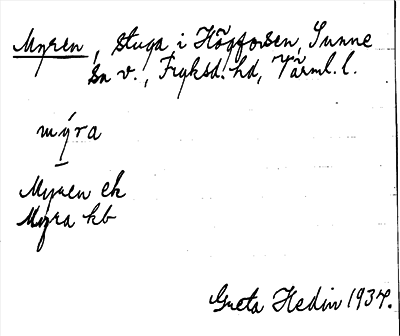 Myren, stuga i Högforsen, Sunne
sn v., Fryksd. hd, Värml. l.
mýra
Myren ek
Myra kb
Greta Hedin 1934.